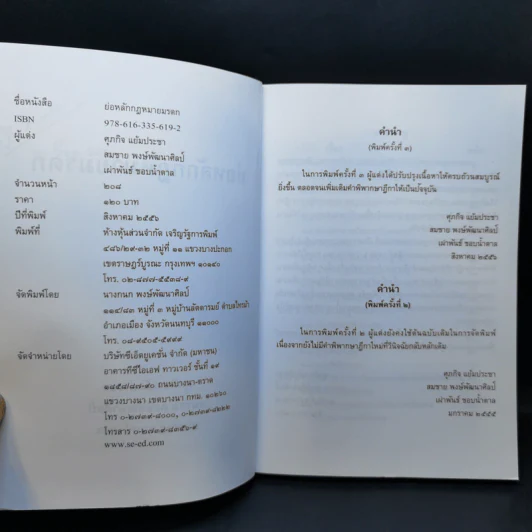 ชื่อหนังสือ ย่อหลักกฎหมายมรดก
ISBN 978-616-335-619-2
ผู้แต่ง ศุภกิจ แย้มประชา
สมชาย พงษ์พัฒนาศิลป์
เผ่าพันธ์ ชอบน้ำตาล
จำนวนหน้า ๒๐๘
ราคา ๑๒๐ บาท
ปีที่พิมพ์ สิงหาคม ๒๕๕๖
พิมพ์ที่ ห้างหุ้นส่วนจำกัด เจริญรัฐการพิมพ์
๔๘๖/๒๙-๓๒ หมู่ที่ ๑๑ แขวงบางปะกอก
เขตราษฎร์บูรณะ กรุงเทพฯ ๑๐๑๔๐
โทร. ๐๒-๘๗๗-๕๕๓๘-๙
จัดพิมพ์โดย นางกนก พงษ์พัฒนาศิลป์
๑๑๔/๘๓ หมู่ที่ ๓ หมู่บ้านลัดดารมย์ ตำบลไทรม้า
อำเภอเมือง จังหวัดนนทบุรี ๑๑๐๐๐
โทร. ๐๘-๙๕๐๕-๕๙๙๙
จัดจำหน่ายโดย บริษัทซีเอ็ดยูเคชั่น จำกัด (มหาชน)
อาคารทีซีไอเอฟ ทาวเวอร์ ชั้นที่ ๑๙
๑๘๕๘/๘๗-๙๐ ถนนบางนา-ตราด
แขวงบางนา เขตบางนา กทม. ๑๐๒๖๐
โทร ๐-๒๗๓๙-๘๐๐๐, ๐-๒๗๓๙-๘๒๒๒
โทรสาร ๐-๒๗๓๙-๘๓๕๖-๙
www.se-ed.com
คำนำ
(พิมพ์ครั้งที่ ๓)
ในการพิมพ์ครั้งที่ ๓ ผู้แต่งได้ปรับปรุงเนื้อหาให้ครบถ้วนสมบูรณ์
ยิ่งขึ้น ตลอดจนเพิ่มเติมคำพิพากษาฎีกาให้เป็นปัจจุบัน
ศุภกิจ แย้มประชา
สมชาย พงษ์พัฒนาศิลป์
เผ่าพันธ์ ชอบน้ำตาล
สิงหาคม ๒๕๕๖
คำนำ
(พิมพ์ครั้งที่ ๒)
ในการพิมพ์ครั้งที่ ๒ ผู้แต่งยังคงใช้ต้นฉบับเดิมในการจัดพิมพ์
เนื่องจากยังไม่มีคำพิพากษาฎีกาใหม่ที่วินิจฉัยกลับหลักเดิม
ศุภกิจ แย้มประชา
สมชาย พงษ์พัฒนาศิลป์
เผ่าพันธ์ ชอบน้ำตาล
มกราคม ๒๕๕๕